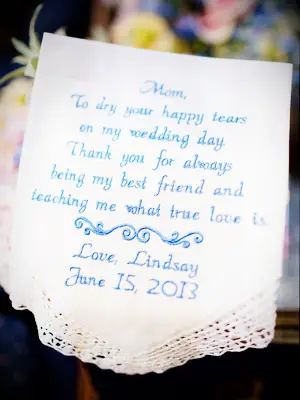 Mom,
To dry your happy tears
on my wedding day.
Thank you for always
being my best friend and
teaching me what true love is.
Love, Lindsay
June 15, 2013